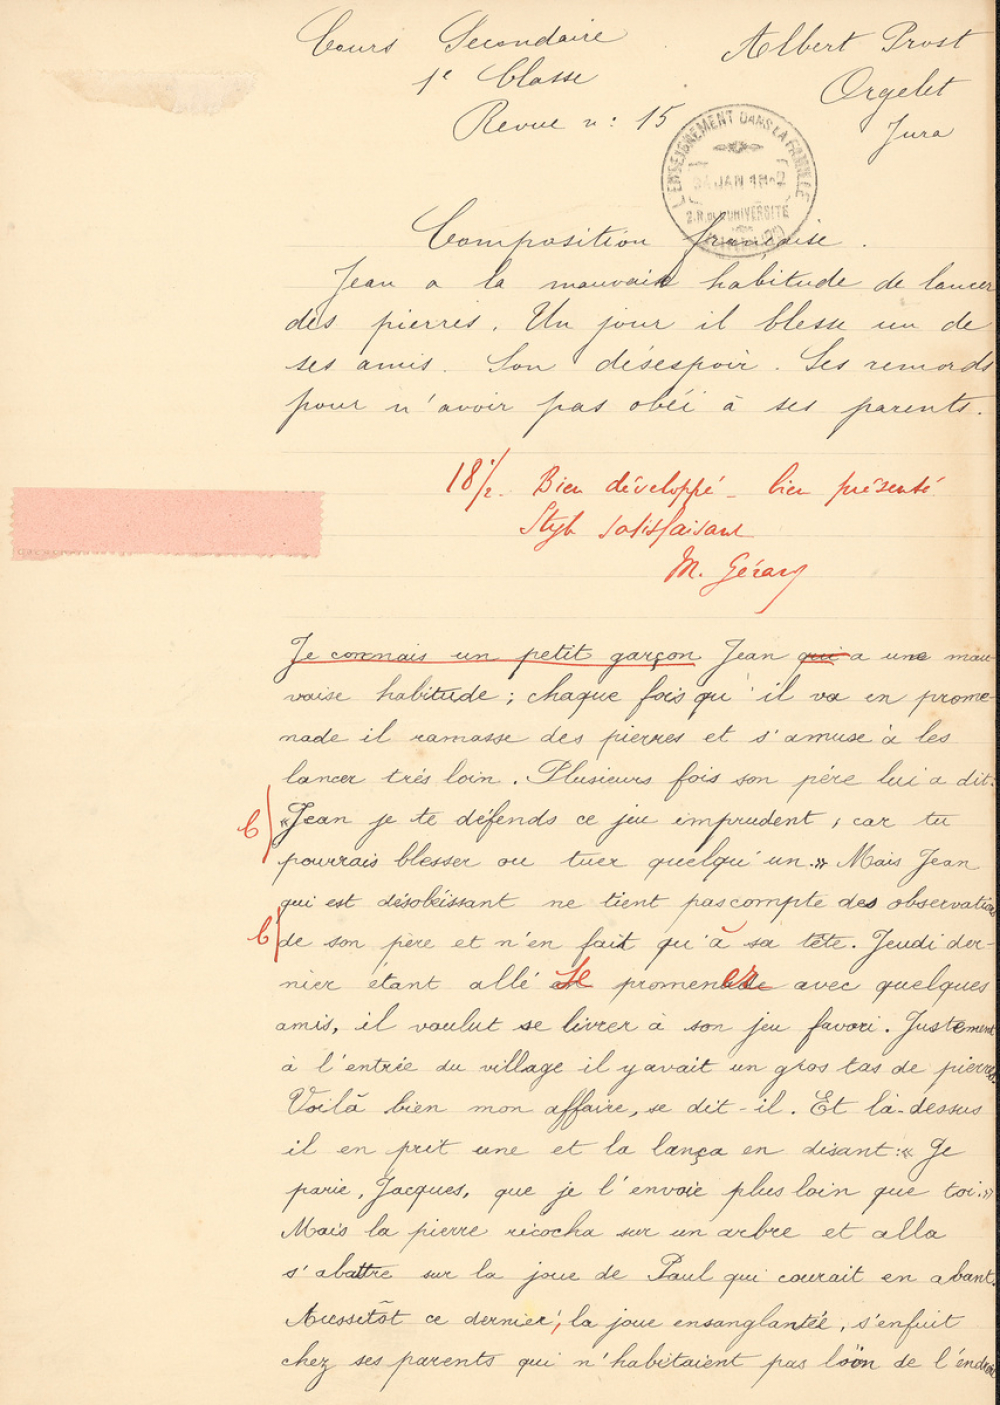 Cours Secondaire
Albert Prost
1e Classe
Orgelet
Revue n: 15
Jura
L'ENSEIGNEMENT DANS LA FAMILLE
JAN
2.R. de l'UNIVERSITÉ
Composition française.
Jean a la mauvaise habitude de lancer
des pierres. Un jour il blesse un de
ses amis. Son désespoir. Ses remords
pour n'avoir pas obéi à ses parents.
18 1/2. Bien développé – bien présenté
Style satisfaisant
M. Gérard
Je connais un petit garçon Jean qui a une mau-
vaise habitude ; chaque fois qu'il va en prome-
nade il ramasse des pierres et s'amuse à les
lancer trés loin. Plusieurs fois son pére lui a dit:
b «Jean je te défends ce jeu imprudent, car tu
pourrais blesser ou tuer quelqu'un.» Mais Jean
qui est désobéissant ne tient pas compte des observations
b de son père et n'en fait qu'à sa tête. Jeudi der-
nier étant allé se promener avec quelques
amis, il voulut se livrer à son jeu favori. Justement
à l'entrée du village il y avait un gros tas de pierres
Voilà bien mon affaire, se dit-il. Et là-dessus
il en prit une et la lança en disant: « Je
parie, Jacques, que je l'envoie plus loin que toi.»
Mais la pierre ricocha sur un arbre et alla
s'abattre sur la joue de Paul qui courait en abant.
Aussitôt ce dernier, la joue ensanglantée, s'enfuit
chez ses parents qui n'habitaient pas loin de l'endroit